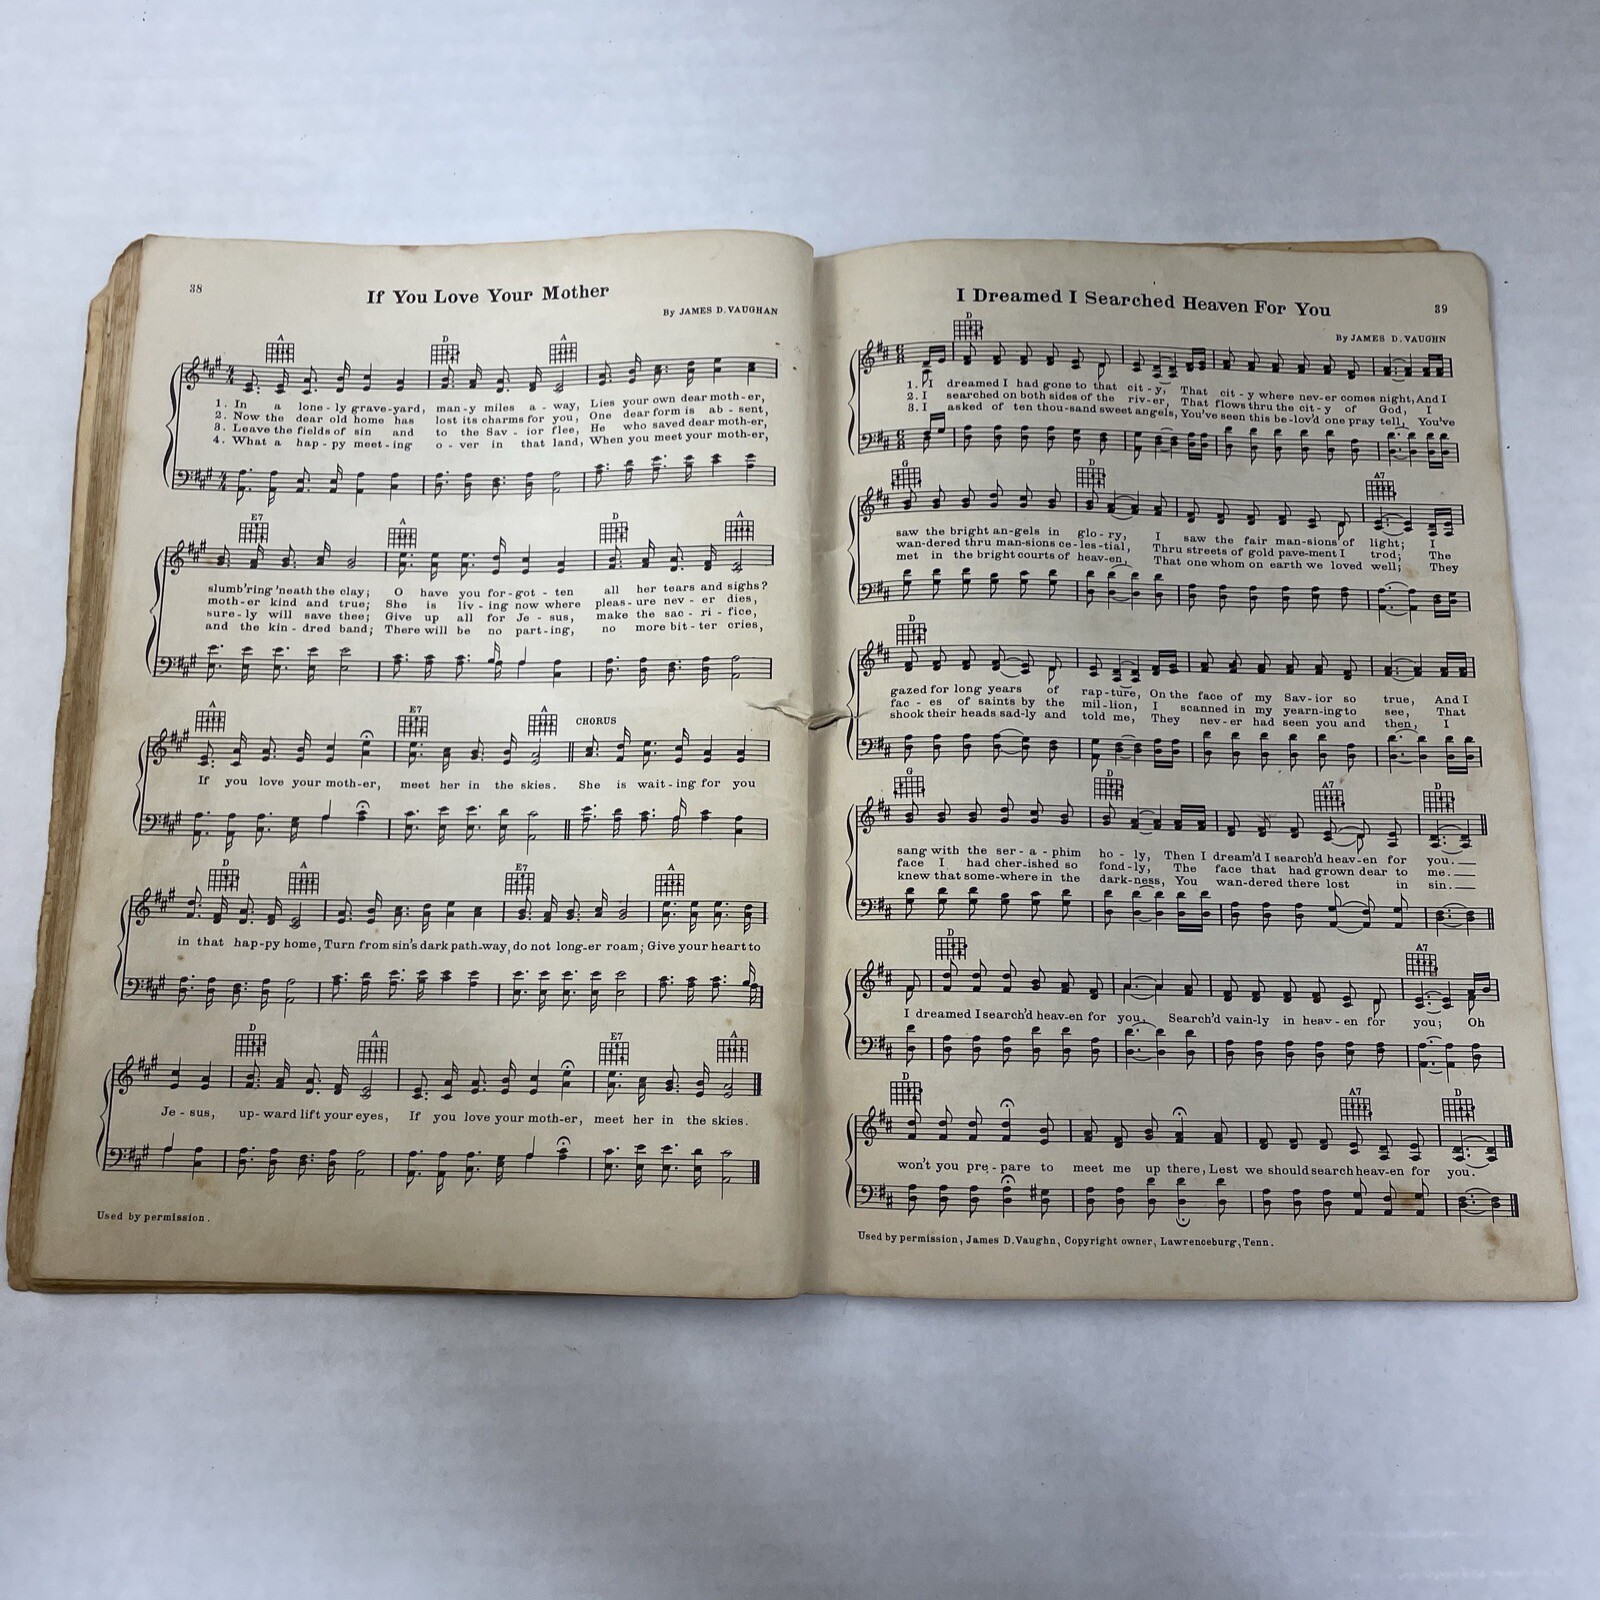 38
If You Love Your Mother
By JAMES D. VAUGHAN
A D A
1. In a lone-ly grave-yard, man-y miles a-way, Lies your own dear moth-er,
2. Now the dear old home has lost its charms for you, One dear form is ab-sent,
3. Leave the fields of sin and to the Sav-ior flee, He who saved dear moth-er,
4. What a hap-py meet-ing o-ver in that land, When you meet your moth-er,
E7 A D A
slumb'ring 'neath the clay; O have you for-got-ten all her tears and sighs?
moth-er kind and true; She is liv-ing now where pleas-ure nev-er dies,
sure-ly will save thee; Give up all for Je-sus, make the sac-ri-fice,
and the kin-dred band; There will be no part-ing, no more bit-ter cries,
A E7 A CHORUS
If you love your moth-er, meet her in the skies. She is wait-ing for you
D A E7 A
in that hap-py home, Turn from sin's dark path-way, do not long-er roam; Give your heart to
D A E7 A
Je-sus, up-ward lift your eyes, If you love your moth-er, meet her in the skies.
Used by permission.
I Dreamed I Searched Heaven For You
39
By JAMES D. VAUGHN
D
1. I dreamed I had gone to that cit-y, That cit-y where nev-er comes night, And I
2. I searched on both sides of the riv-er, That flows thru the cit-y of God, I
3. I asked of ten thou-sand sweet angels, You've seen this be-lov'd one pray tell, You've
G D A7
saw the bright an-gels in glo-ry, I saw the fair man-sions of light; I
wan-dered thru man-sions ce-les-tial, Thru streets of gold pave-ment I trod; The
met in the bright courts of heav-en, That one whom on earth we loved well; They
D
gazed for long years of rap-ture, On the face of my Sav-ior so true, And I
fac-es of saints by the mil-lion, I scanned in my yearn-ing to see, That
shook their heads sad-ly and told me, They nev-er had seen you and then, I
G D A7 D
sang with the ser-a-phim ho-ly, Then I dream'd I search'd heav-en for you.
face I had cher-ished so fond-ly, The face that had grown dear to me.
knew that some-where in the dark-ness, You wan-dered there lost in sin.
D A7
I dreamed I search'd heav-en for you, Search'd vain-ly in heav-en for you; Oh
D A7 D
won't you pre-pare to meet me up there, Lest we should search heav-en for you.
Used by permission, James D. Vaughn, Copyright owner, Lawrenceburg, Tenn.